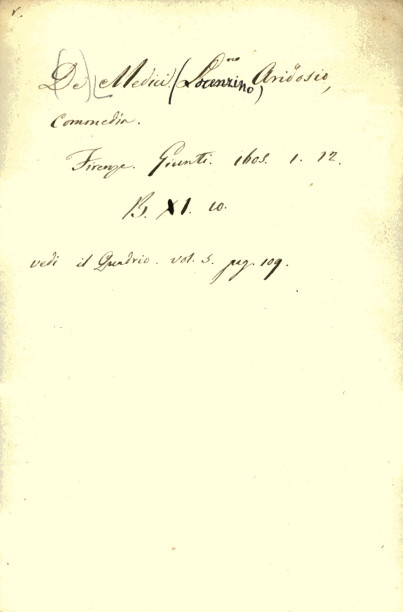 (De) Medici (Lorenzino) Aridosio,
Commedia.
Firenze. Giunti. 1605. 1. 12.
B. XI. 10.
vedi il Quadrio. vol. 5. pag. 109.